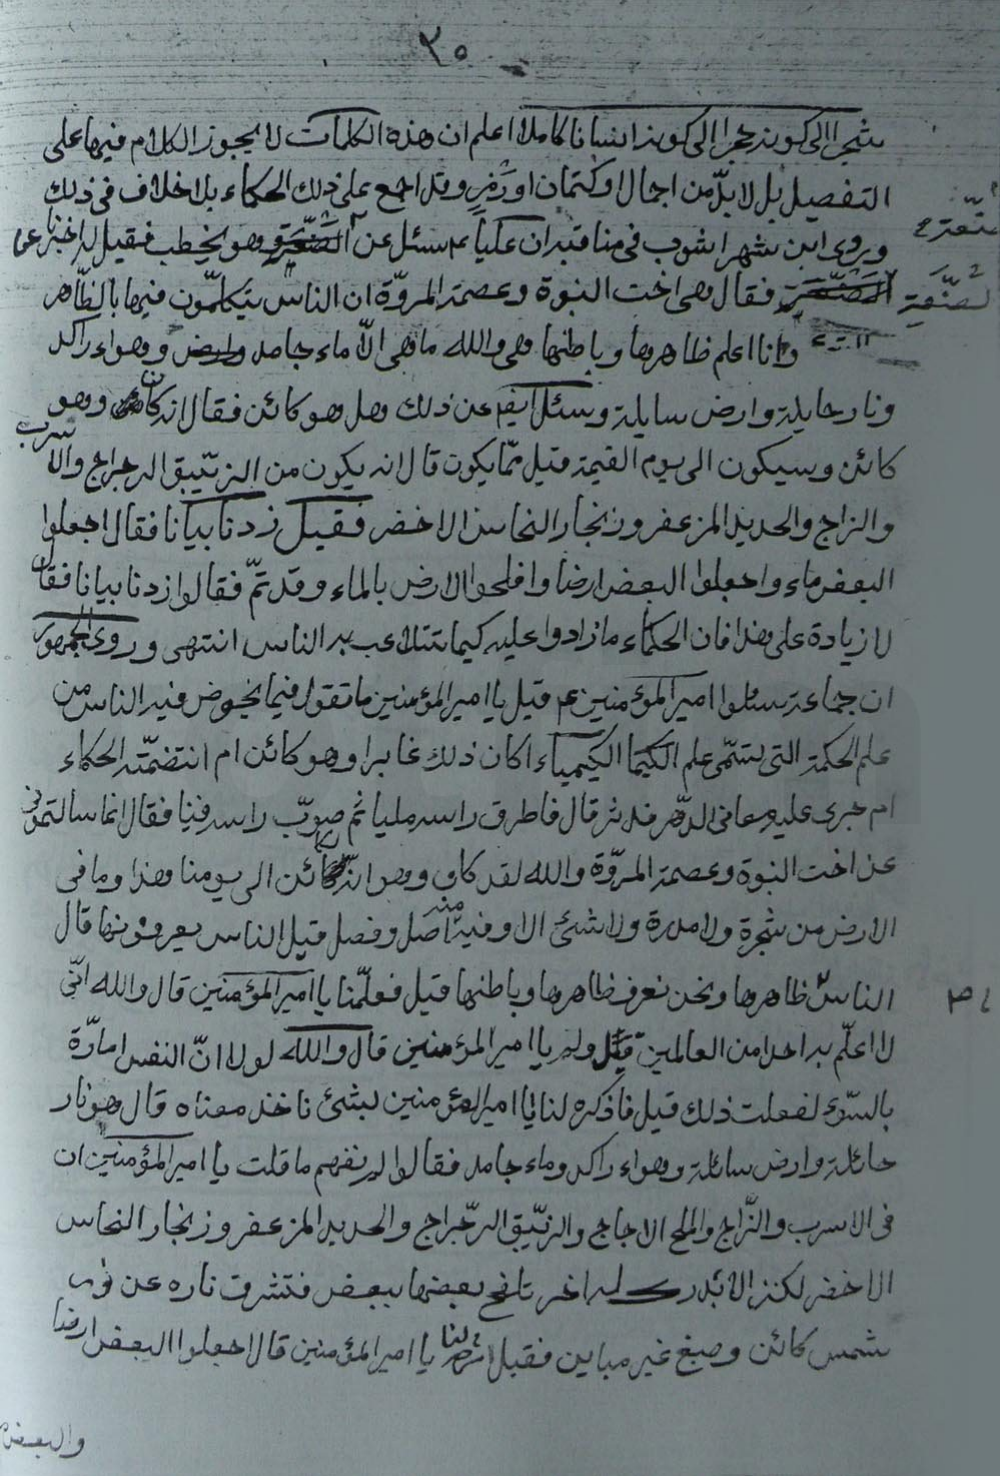 ٣٥
شجرا الى كونه حجرا الى كونه انسانا كاملا اعلم ان هذه الكلمات لا يجوز الكلام فيها على
التفصيل بل لا بدّ من اجمال او كتمان او رمز وقد اجمع على ذلك الحكماء بلا خلاف فى ذلك
وروى ابن شهراشوب فى مناقبه ان عليا ع سئل عن الصنعة وهو يخطب فقيل له اخبرنا عن
الصنعة فقال هى اخت النبوة وعصمة المروّة ان الناس يتكلمّون فيها بالظّاهر
وانا اعلم ظاهرها وباطنها هى والله ماهى الّا ماء جامد وهواء راكد
ونار حايلة وارض سايلة وسئل ايضم عن ذلك وهل هو كائن فقال انه كان وهو
كائن وسيكون الى يوم القيمة فقيل ممّا يكون قال انه يكون من الزيبق الرجراج والاسرب
والزاج والحديد المزعفر وزنجار النحاس الاخضر فقيل زدنا بيانا فقال اجعلوا
البعض ماء واجعلوا البعض ارضا وافلحوا الارض بالماء وقد تمّ فقالوا زدنا بيانا فقال
لا زيادة على هذا فان الحكماء ما زادوا عليه كيما تتلاعب به الناس انتهى وروى الجمهور
ان جماعة سئلوا امير المؤمنين ع فقيل يا امير المؤمنين ما تقول فيما يخوض فيه الناس من
علم الحكمة التى تسمّى علم الكيميا الكيمياء اكان ذلك غابرا وهو كائن ام انتضمّته الحكماء
ام جرى عليه معافى الدّهر فدثر قال فاطرق راسه مليا ثم صوّب راسه فينا فقال انما سالتمونى
عن اخت النبوة وعصمة المروّة والله لقد كان وهو انه كائن الى يومنا هذا وما فى
الارض من شجرة ولا مدرة ولا شئ الا وفيه منه اصل وفصل قيل الناس يعرفونها قال
الناس ظاهرها ونحن نعرف ظاهرها وباطنها قيل فعلّمنا يا امير المؤمنين قال والله انّى
لا اعلّم به احدا من العالمين قيل ولم يا امير المؤمنين قال والله لولا انّ النفس امارّة
بالسّوء لفعلت ذلك قيل فاذكره لنا يا امير المؤمنين لبشئ ناخذ معناه قال هو نار
حائلة وارض سائلة وهواء راكد وماء جامد فقالوا لم نفهم ما قلت يا امير المؤمنين ان
فى الاسرب والزّاج والملح الاجاج والزيّبق الرّجراج والحديد المزعفر وزنجار النحاس
الاخضر لكنز الا يدرك له اخر تلقح بعضها ببعض فتشرق ناره عن
شمس كائن وصبغ غير مباين فقيل لنا يا امير المؤمنين قال اجعلوا البعض ارضا
والبعض